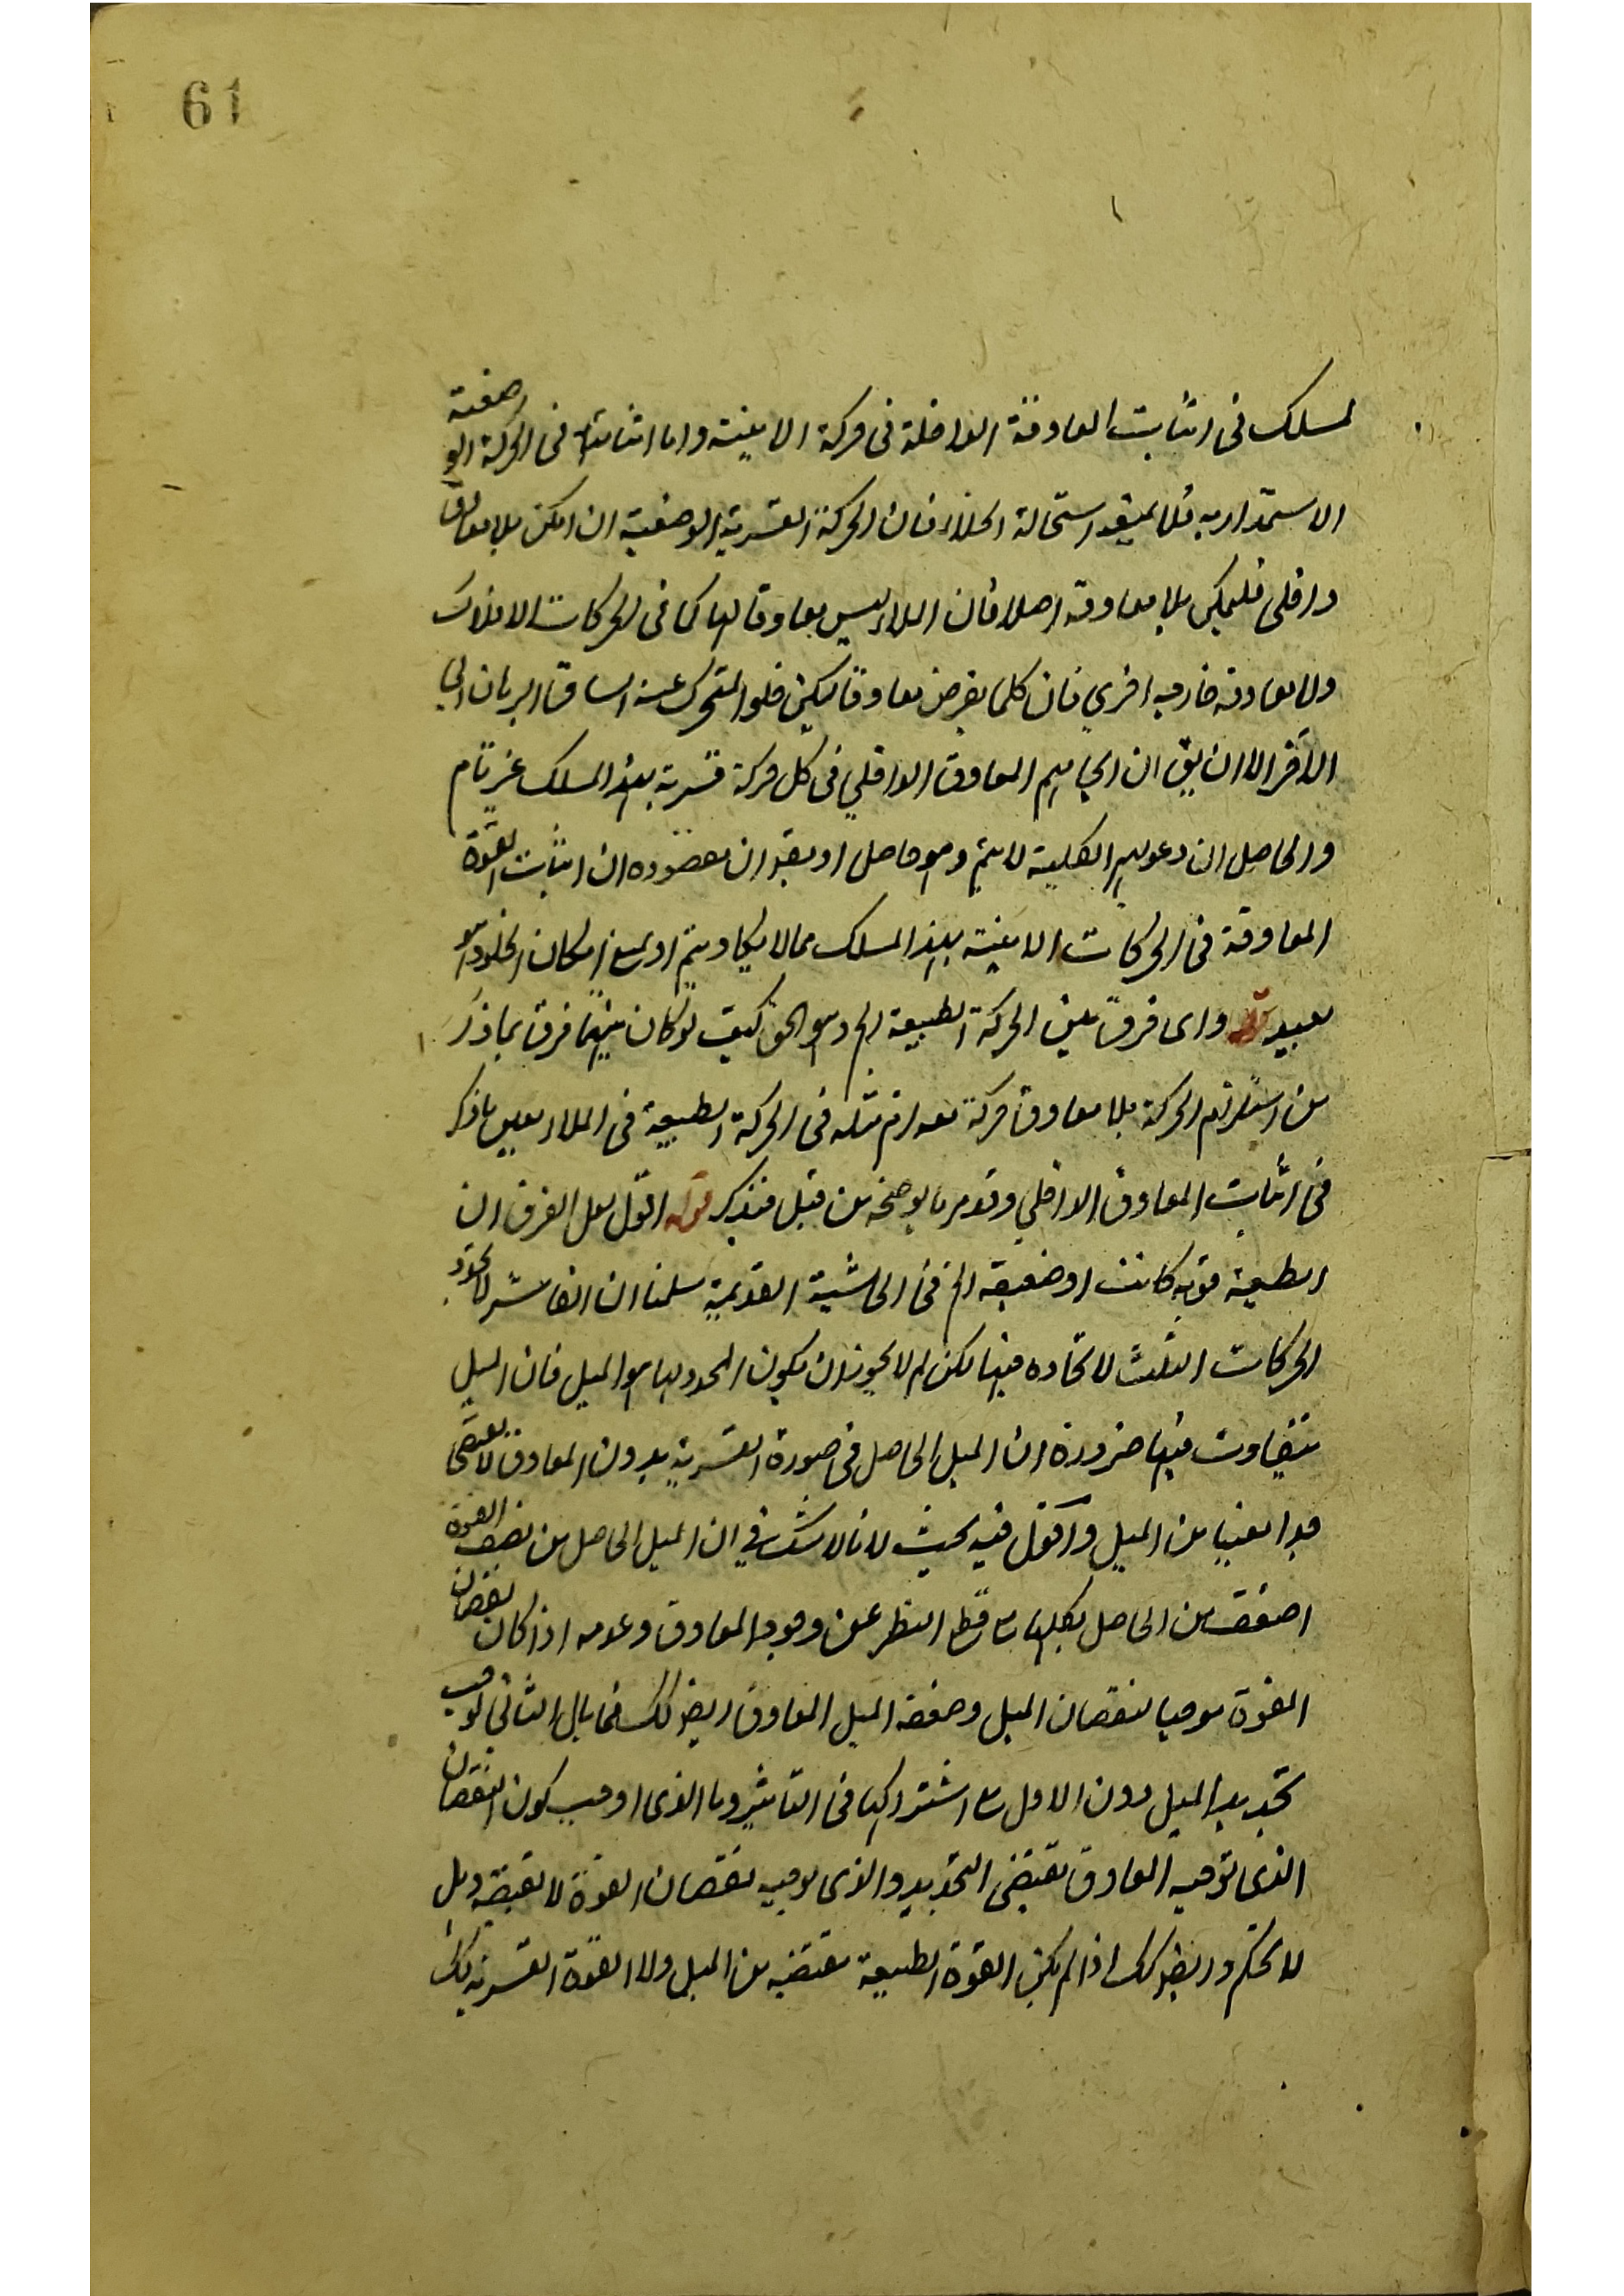 61
لمسلك فى اثبات المعاوقة الداخلة فى حركة الاينية واما اثباتها فى الحركة الوضعية
الاستدارية فلا يفيد استحالة الخلاء فان الحركة القسرية الوضعية ان امكن بلا معاوق
داخلى فليمكن بلا معاوقة اصلا فان الملاء ليس معاوقا لها كما فى الحركات الافلاك
ولا معاوقة خارجية اخرى فان كلما يفرض معاوقا يمكن خلو المتحرك عنه
الآخر الا ان يق ان ايجابهم المعاوق الداخلي فى كل حركة قسرية بهذا المسلك غير تام
والحاصل ان دعويهم الكلية لا يتم وهو حاصل او يقو ان مقصوده ان اثبات القوة
المعاوقة فى الحركات الاينية بهذا المسلك مما لا يكاد يتم اذ يمنع امكان الخلو وهو
بعيد قوله واى فرق بين الحركة الطبيعية الخ وهو الحق كيف لو كان بينهما فرق بما ذكر
من استلزام الحركة بلا معاوق حركة معه لزم مثله فى الحركة الطبيعية فى الملاء بعين ما ذكر
فى اثبات المعاوق الداخلي وقد مر ما يوضحه من قبل فتذكر قوله اقول لعل الفرق ان
الطبيعة قوية كانت او ضعيفة الخ فى الحاشية القديمة سلمنا ان القاسر لا يحدد
الحركات الثلث لاتحاده فيها لكن لم لا يجوز ان يكون المحدد لها هو الميل فان الميل
يتفاوت فيها ضرورة ان الميل الحاصل فى صورة القسرية بدون المعاوق لا يقتضى
حدا معينا من الميل واقول فيه بحيث لانا لا شك فى ان الميل الحاصل من نصف القوة
اضعف من الحاصل بكلها مع قطع النظر عن وجود المعاوق وعدمه اذا كان نقصان
القوة موجبا لنقصان الميل وضعفه الميل المعاوق ايضا كك فما بال الثانى يوجب
تحديد الميل دون الاول مع اشتراكهما فى التاثير وما الذى اوجب كون النقصان
الذى توجبه المعاوق يقتضى التحديد والذى يوجبه نقصان القوة لا يقتضيه وهل
لا تحكم وايضا كك اذا لم يكن القوة الطبيعية مقتضية من الميل ولا القوة القسرية كك